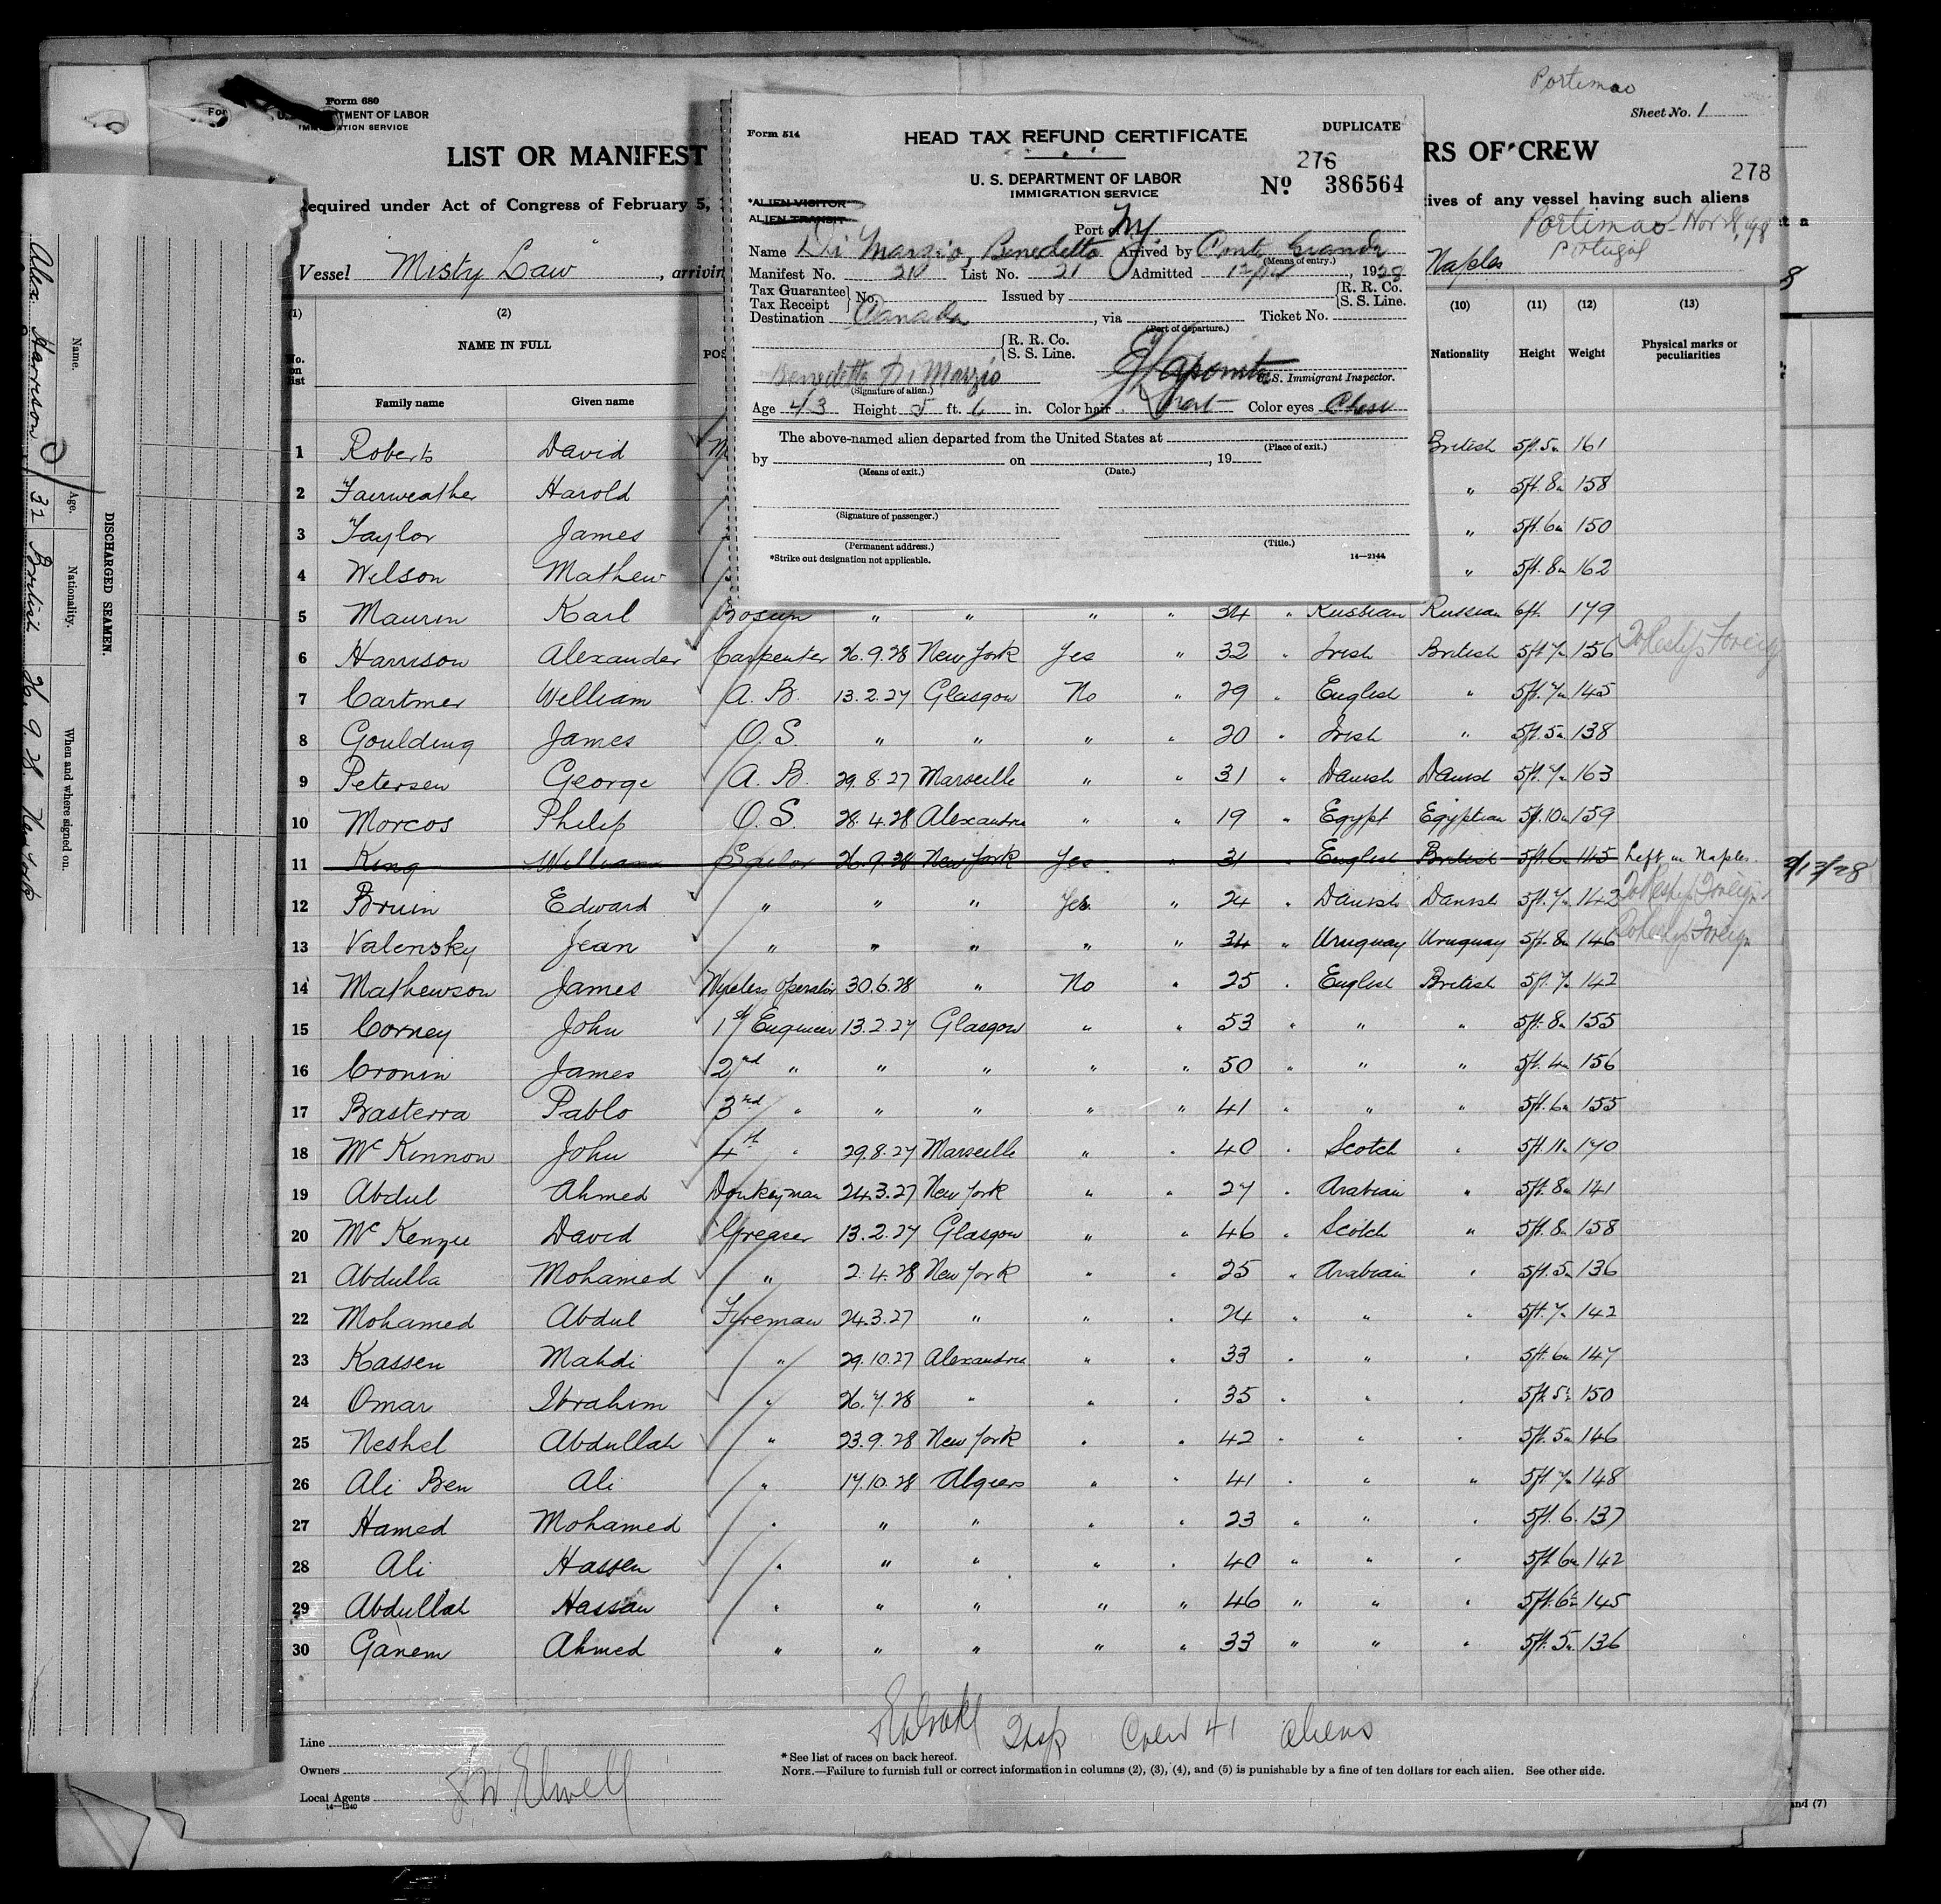 Portimao
Form 680
U. S. DEPARTMENT OF LABOR
IMMIGRATION SERVICE
Sheet No. 1
LIST OR MANIFEST
RS OF CREW
278
equired under Act of Congress of February 5,
tives of any vessel having such aliens
Portimao Nov
Portugal
Vessel Misty Law, arrivin
Naples
Form 514
HEAD TAX REFUND CERTIFICATE
DUPLICATE
276
U. S. DEPARTMENT OF LABOR
IMMIGRATION SERVICE
No 386564
*ALIEN VISITOR
ALIEN TRANSIT
Port of NY.
Name Di Marzio, Benedetto Arrived by Conte Grande
(Means of entry.)
Manifest No. 21 List No. 21 Admitted , 1928
Tax Guarantee
Tax Receipt
No. Issued by
R. R. Co.
S. S. Line.
Destination Canada, via Ticket No.
(Port of departure.)
R. R. Co.
S. S. Line.
Benedetto Di Marzio
(Signature of alien.)
U.S. Immigrant Inspector.
Age 43 Height 5 ft. 6 in. Color hair Color eyes
The above-named alien departed from the United States at
(Place of exit.)
by on , 19
(Means of exit.) (Date.)
(Signature of passenger.)
(Permanent address.) (Title.)
*Strike out designation not applicable.
14—2144
(1) (2) (10) (11) (12) (13)
No. on list
NAME IN FULL
POS
Nationality Height Weight Physical marks or peculiarities
Family name Given name
1 Roberts David British 5ft. 5in 161
2 Fairweather Harold " 5ft. 8in 158
3 Taylor James " 5ft. 6in 150
4 Wilson Mathew " 5ft. 8in 162
5 Maurin Karl Bosun " " " " 34 " Russian Russian 6ft. 179
6 Harrison Alexander Carpenter 26.9.28 New York Yes " 32 " Irish British 5ft 7in 156 To Reship Foreign
7 Cartmer William A. B. 13.2.27 Glasgow No " 29 " English " 5ft. 7in 145
8 Goulding James O. S. " " " " 20 " Irish " 5ft. 5in 138
9 Petersen George A. B. 29.8.27 Marseille " " 31 " Danish Danish 5ft. 7in 163
10 Morcos Philip O. S. 28.4.28 Alexandria " " 19 " Egypt Egyptian 5ft. 10in 159
11 King William Sailor 26.9.28 New York Yes " 31 " English British 5ft. 6in 145 Left in Naples.
12 Bruin Edward " " " Yes " 24 " Danish Danish 5ft. 7in 142 To Reship Foreign
13 Valensky Jean " " " " " 34 " Uruguay Uruguay 5ft. 8in 146 To Reship Foreign
14 Mathewson James Wireless Operator 30.6.28 " No " 25 " English British 5ft. 7in 142
15 Corney John 1st Engineer 13.2.27 Glasgow " " 53 " " " 5ft. 8in 155
16 Cronin James 2nd " " " " " 50 " " " 5ft. 4in 156
17 Basterra Pablo 3rd " " " " " 41 " " " 5ft. 6in 155
18 McKinnon John 4th " 29.8.27 Marseille " " 40 " Scotch " 5ft. 11in 170
19 Abdul Ahmed Donkeyman 24.3.27 New York " " 27 " Arabian " 5ft. 8in 141
20 McKenzie David Greaser 13.2.27 Glasgow " " 46 " Scotch " 5ft. 8in 158
21 Abdulla Mohamed " 2.4.28 New York " " 25 " Arabian " 5ft. 5in 136
22 Mohamed Abdul Fireman 24.3.27 " " " 24 " " " 5ft. 7in 142
23 Kassen Mahdi " 29.10.27 Alexandria " " 33 " " " 5ft. 6in 147
24 Omar Ibrahim " 26.7.28 " " " 35 " " " 5ft. 5in 150
25 Neshel Abdullah " 23.9.28 New York " " 42 " " " 5ft. 5in 146
26 Ali Ben Ali " 17.10.28 Algiers " " 41 " " " 5ft. 7in 148
27 Hamed Mohamed " " " " " 23 " " " 5ft. 6. 137
28 Ali Hassen " " " " " 40 " " " 5ft 6in 142
29 Abdullah Hassan " " " " " 46 " " " 5ft. 6in 145
30 Ganem Ahmed " " " " " 33 " " " 5ft. 5in 136
Insp Crew 41 aliens
Line
Owners
Local Agents
J W. Elwell
14—1240
* See list of races on back hereof.
NOTE.—Failure to furnish full or correct information in columns (2), (3), (4), and (5) is punishable by a fine of ten dollars for each alien. See other side.
and (7)
DISCHARGED SEAMEN.
Name. Age. Nationality. When and where signed on.
Alex Harrison 32 British 26.9.28. New York